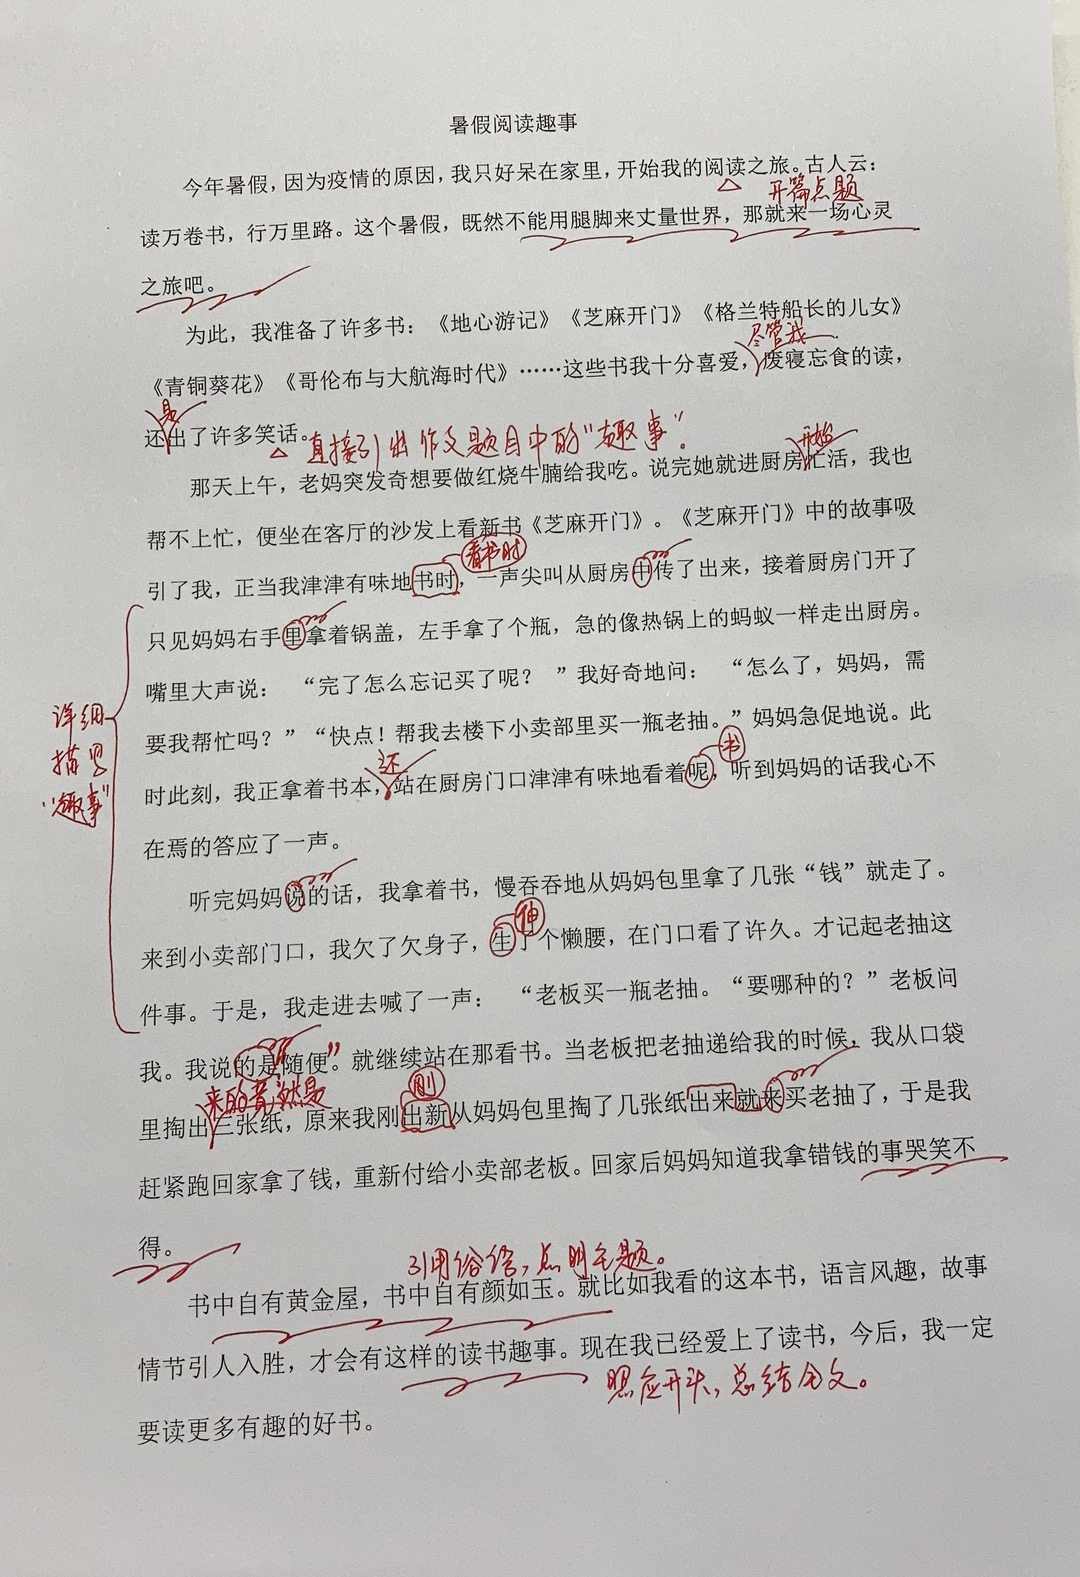 暑假阅读趣事
今年暑假，因为疫情的原因，我只好呆在家里，开始我的阅读之旅。古人云：
开篇点题
读万卷书，行万里路。这个暑假，既然不能用腿脚来丈量世界，那就来一场心灵
之旅吧。
为此，我准备了许多书：《地心游记》《芝麻开门》《格兰特船长的儿女》
尽管我
《青铜葵花》《哥伦布与大航海时代》……这些书我十分喜爱，废寝忘食的读，
是
还出了许多笑话。
直接引出作文题目中的“趣事”。
开始
那天上午，老妈突发奇想要做红烧牛腩给我吃。说完她就进厨房忙活，我也
帮不上忙，便坐在客厅的沙发上看新书《芝麻开门》。《芝麻开门》中的故事吸
看书时
引了我，正当我津津有味地书时，一声尖叫从厨房中传了出来，接着厨房门开了
只见妈妈右手里拿着锅盖，左手拿了个瓶，急的像热锅上的蚂蚁一样走出厨房。
嘴里大声说： “完了怎么忘记买了呢？ ”我好奇地问： “怎么了，妈妈，需
详细描写“趣事”
要我帮忙吗？”“快点！帮我去楼下小卖部里买一瓶老抽。”妈妈急促地说。此
还
书
时此刻，我正拿着书本，站在厨房门口津津有味地看着呢，听到妈妈的话我心不
在焉的答应了一声。
听完妈妈说的话，我拿着书，慢吞吞地从妈妈包里拿了几张“钱”就走了。
伸
来到小卖部门口，我欠了欠身子，生了个懒腰，在门口看了许久。才记起老抽这
件事。于是，我走进去喊了一声： “老板买一瓶老抽。“要哪种的？”老板问
我。我说的是随便”。就继续站在那看书。当老板把老抽递给我的时候，我从口袋
来的竟然是
刚
里掏出三张纸，原来我刚出新从妈妈包里掏了几张纸出来就来买老抽了，于是我
赶紧跑回家拿了钱，重新付给小卖部老板。回家后妈妈知道我拿错钱的事哭笑不
得。
引用俗语，点明主题。
书中自有黄金屋，书中自有颜如玉。就比如我看的这本书，语言风趣，故事
情节引人入胜，才会有这样的读书趣事。现在我已经爱上了读书，今后，我一定
照应开头，总结全文。
要读更多有趣的好书。